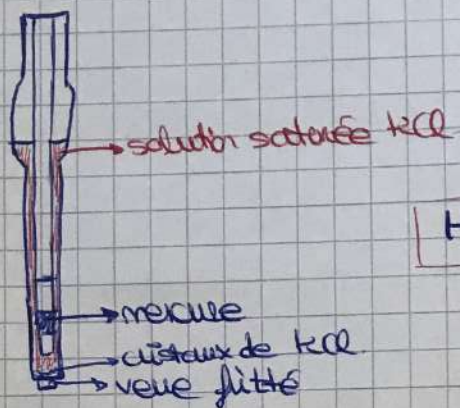 solution saturée KCl
H
mercure
cristaux de KCl.
verre fritté